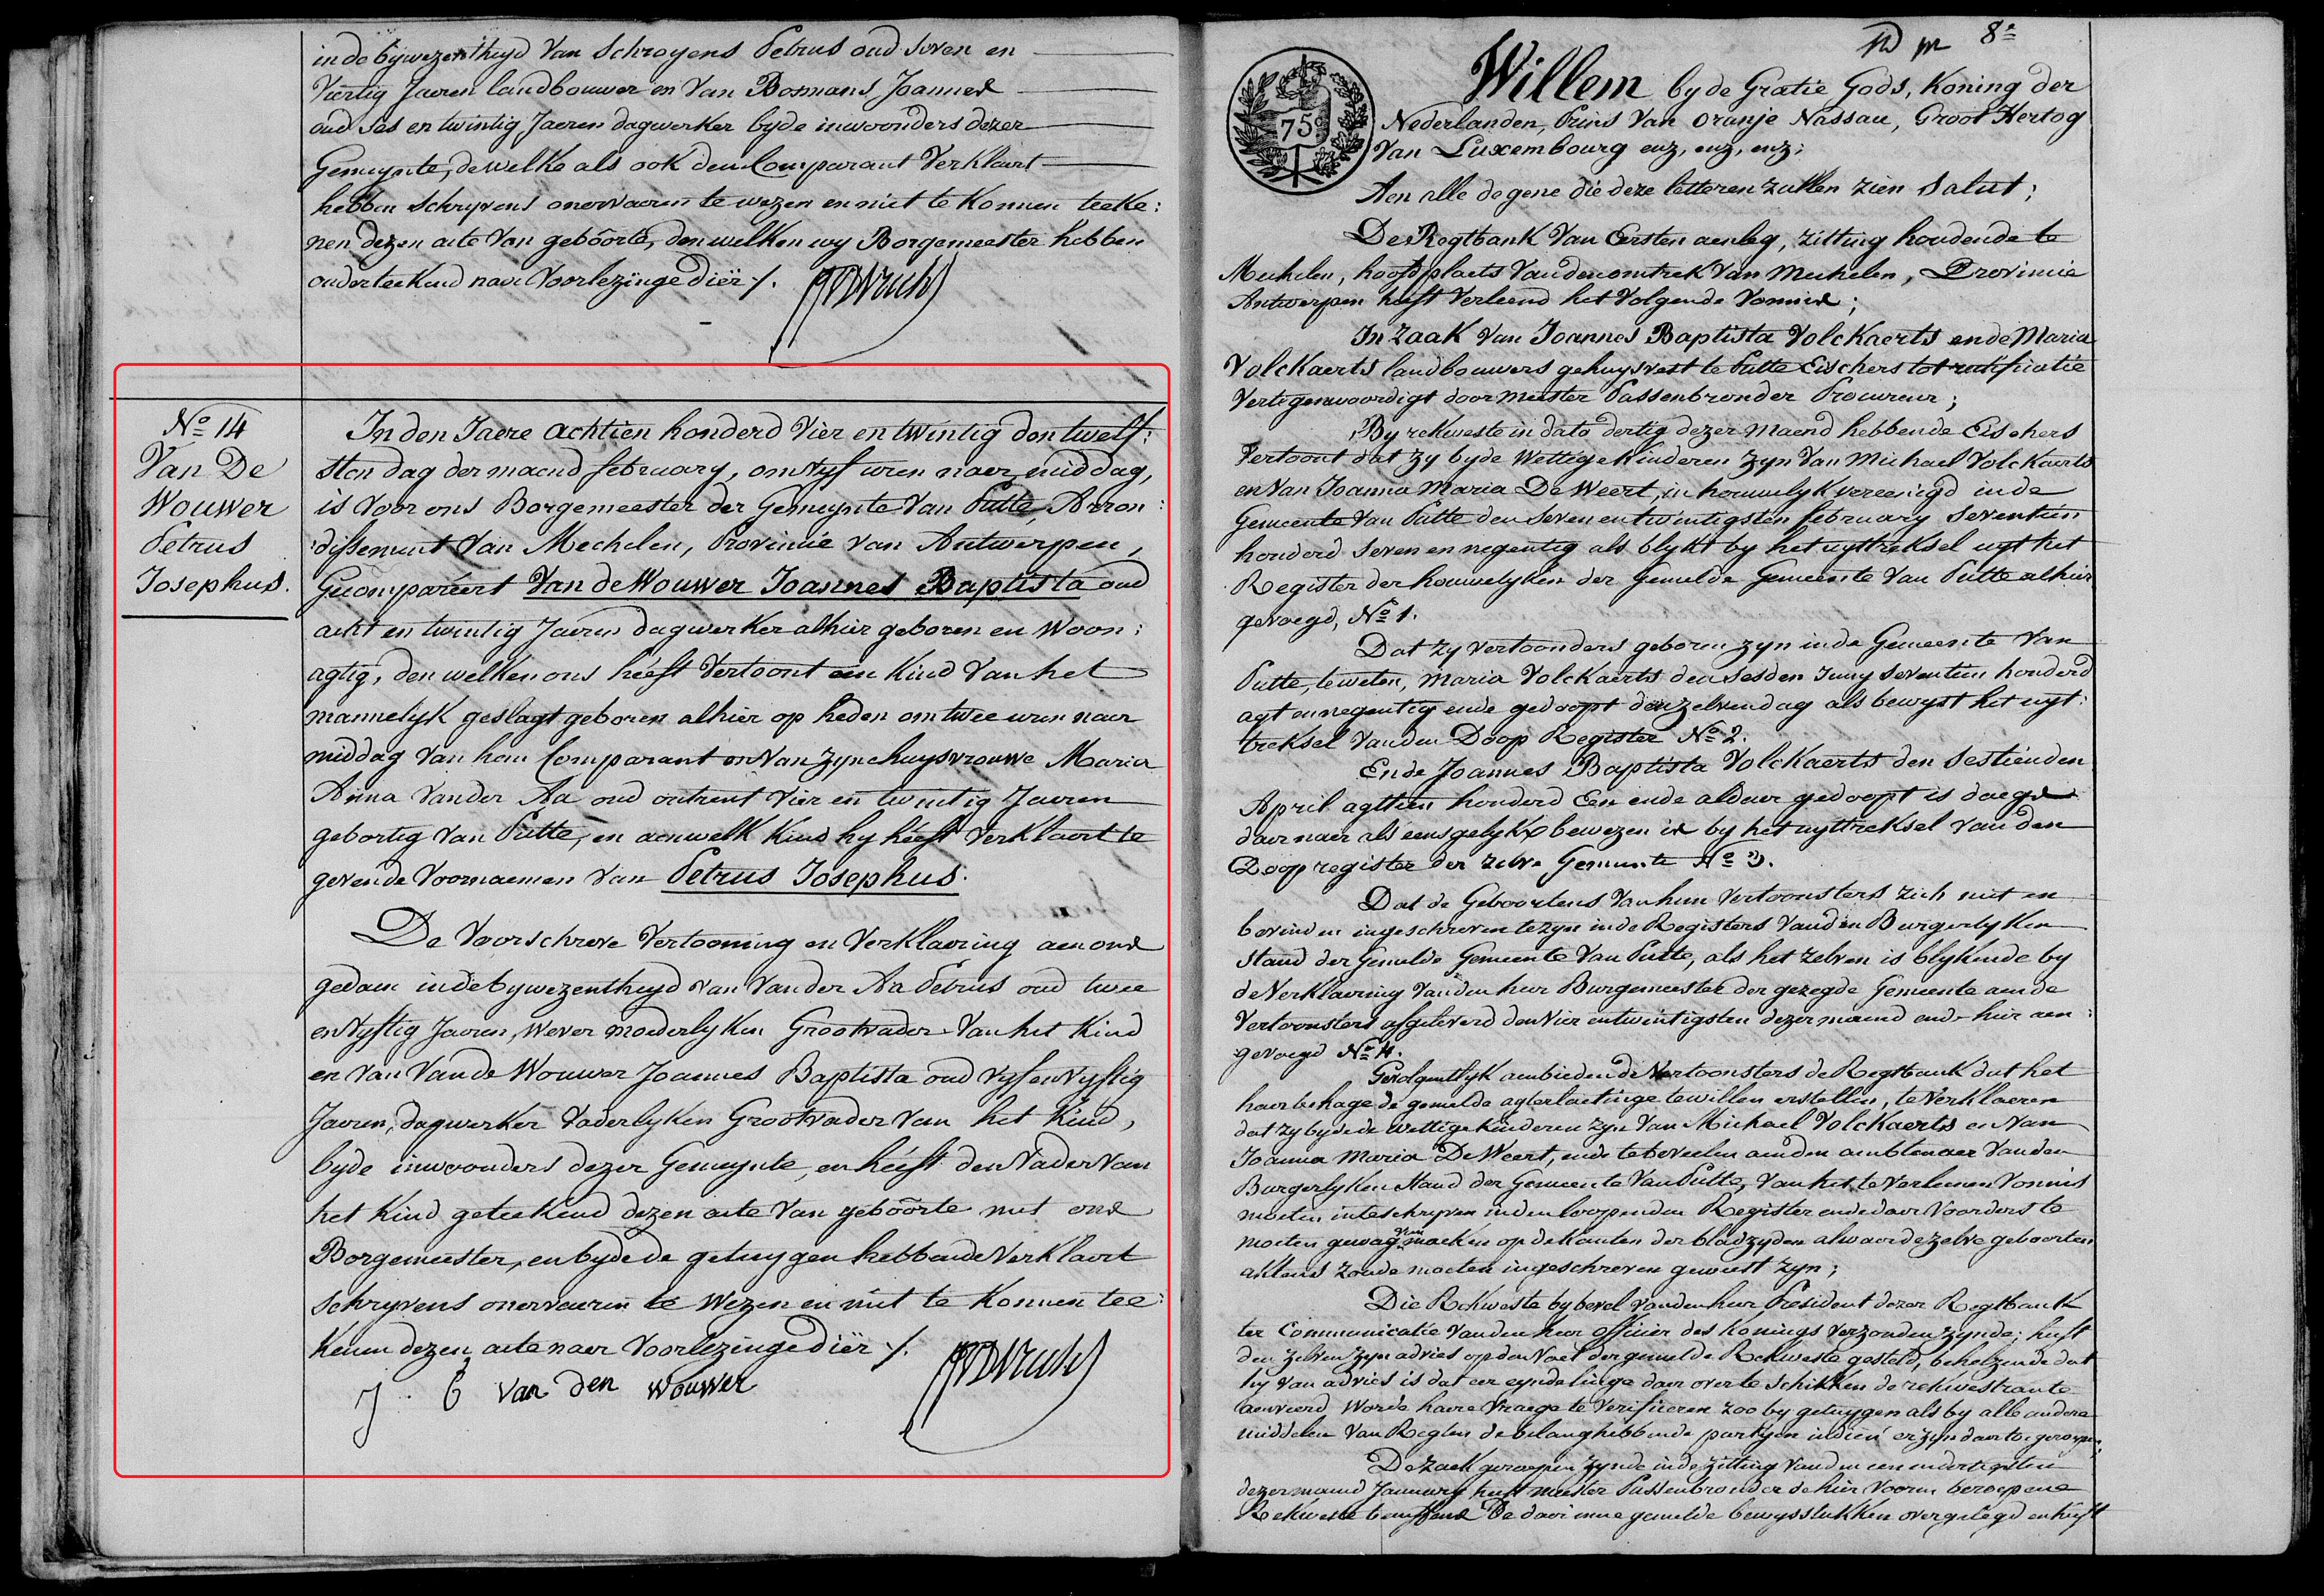 in de bywezentheyd van Schroyens Petrus oud Seven en
Viertig Jaeren landbouwer en Van Bosmans Joannes
oud Ses en twintig Jaeren dagwerker byde inwoonders dezer
Gemeynte, de welke als ook den Comparant Verklaert
hebben Schryvens onervaeren te wezen en niet te konnen teeke:
nen dezen acte van geboorte, den welken wy Borgemeester hebben
onderteekend naer Voorlezinge dier ./.
No 14
Van De
Wouwer
Petrus
Josephus.
In den Jaere achtien honderd Vier en twintig den twelf:
sten dag der maend february, om vyf uren naer middag,
is Voor ons Borgemeester der Gemeynte Van Putte, Arron:
dissement Van Mechelen, Provincie van Antwerpen,
Gecompareert Van de Wouwer Joannes Baptista oud
acht en twintig Jaeren dagwerker alhier geboren en Woon:
agtig, den welken ons heeft Vertoont een Kind Van het
mannelyk geslagt geboren alhier op heden om twee uren naer
middag Van hem Comparant en Van zyne huysvrouwe Maria
Anna Vander Aa oud ontrent Vier en twintig Jaeren
gebortig Van Putte, en aen welk Kind hy heeft Verklaert te
geven de Voornaemen Van Petrus Josephus.
De Voorschreve Vertooning en Verklaering aen ons
gedaen in de bywezentheyd van Vander Aa Petrus oud twee
en Vyftig Jaeren, Wever moederlyken Grootvader Van het Kind
en Van Van de Wouwer Joannes Baptista oud Vyf en Vyftig
Jaeren, dagwerker Vaderlyken Grootvader Van het Kind,
byde inwoonders dezer Gemeynte, en heeft den Vader Van
het Kind geteekend dezen acte Van geboorte met ons
Borgemeester, en byde de getuygen hebbende Verklaert
Schryvens onervaeren te Wezen en niet te Konnen tee:
kenen dezen acte naer Voorlezinge dier ./.
J B van den wouwer
8e
75
Willem by de Gratie Gods, Koning der
Nederlanden, Prins Van Oranje Nassau, Groot Hertog
Van Luxembourg enz, enz, enz;
Aen alle de gene die deze letteren zullen zien Salut;
De Regtbank Van Eersten aenleg, zitting houdende te
Mechelen, hoofdplaets Van den omtrek Van Mechelen, Provincie
Antwerpen heeft Verleend het Volgende Vonnis;
In zaak Van Joannes Baptista Volckaerts ende Maria
Volckaerts landbouwers gehuysvest te Putte Eischers tot rectificatie
Vertegenwoordigt door meester Passenbronder Procureur;
By rekweste in dato dertig dezer maend hebben de Eischers
Vertoont dat zy byde Wettige Kinderen zyn Van Michael Volckaerts
en Van Joanna Maria De Weert, in houwelyk vereenigd in de
Gemeente Van Putte den Seven en twintigsten february Seventien
honderd Seven en negentig als blykt by het uyttreksel uyt het
Register der houwelyken der Gemelde Gemeente Van Putte alhier
gevoegd, No 1.
Dat zy vertoonders geboren zyn in de Gemeente Van
Putte, te weten, Maria Volckaerts den Sesden Juny Seventien honderd
agt en negentig ende gedoopt den zelven dag als bewyst het uyt:
treksel Van den Doop Register No 2.
Ende Joannes Baptista Volckaerts den Sestienden
April agttien honderd Een ende aldaer gedoopt is daegs
daer naer als eensgelyks bewezen is by het uyttreksel Van den
Doop register der zelve Gemeente No 3.
Dat de Geboortens Van hun Vertoonsters zich niet en
bevinden ingeschreven te zyn in de Registers Van den Burgerlyken
Stand der Gemelde Gemeente Van Putte, als het zelven is blykende by
de Verklaering Van den heer Burgemeester der gezegde Gemeente aen de
Vertoonsters afgeleverd den Vier en twintigsten dezer maend ende hier aen:
gevoegd No 4.
Gevolgentlyk aenbieden de Vertoonsters de Regtbank dat het
haer behage de gemelde agterlaetinge te willen erstellen, te Verklaeren
dat zy byde de wettige Kinderen zyn Van Michael Volckaerts en Van
Joanna Maria De Weert, ende te bevelen aen den ambtenaer Van den
Burgerlyken Stand der Gemeente Van Putte, Van het te Verleenen Vonnis
moeten inteschryven in den loopenden Register ende daer Voorders te
moeten gewag maeken op de Kanten der bladzyden alwaer de zelve geboorten
aktens zoude moeten ingeschreven geweest zyn;
Die Rekweste by bevel Van den heer President dezer Regtbank
ter Communicatie Van den heer officier des Konings Verzonden zynde, heeft
den zelven zyn advies op den Voet der gemelde Rekweste gesteld, behelzende dat
hy Van advies is dat eer eyndelinge daer over te schikken de rekwestrante
aenveerd Worde haere Vraege te Verificeren zoo by getuygen als by alle andere
middelen Van Regten de belanghebbende partyen indien er zyn daer toe geroepen;
De zaek geroepen zynde in de zitting Van den een en dertigsten
dezer maend January heeft meester Passenbronder de hier Vooren beroepene
Rekweste de daer inne gemelde bewysstukken overgelegd en heeft